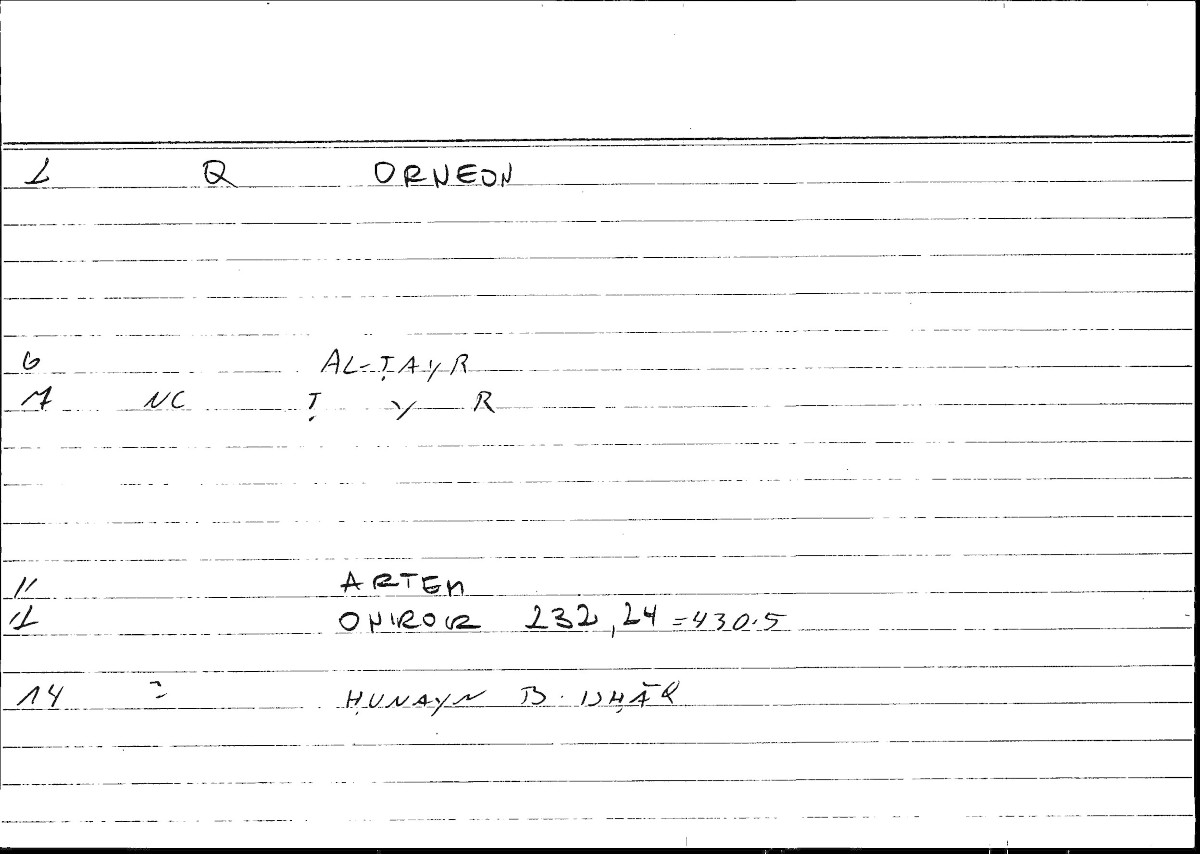 1 Q ORNEON
6 AL-ṬAYR
7 NC Ṭ Y R
11 ARTEM
12 ONIROCR 232,24 =430.5
14 ḤUNAYN B. ISḤĀQ